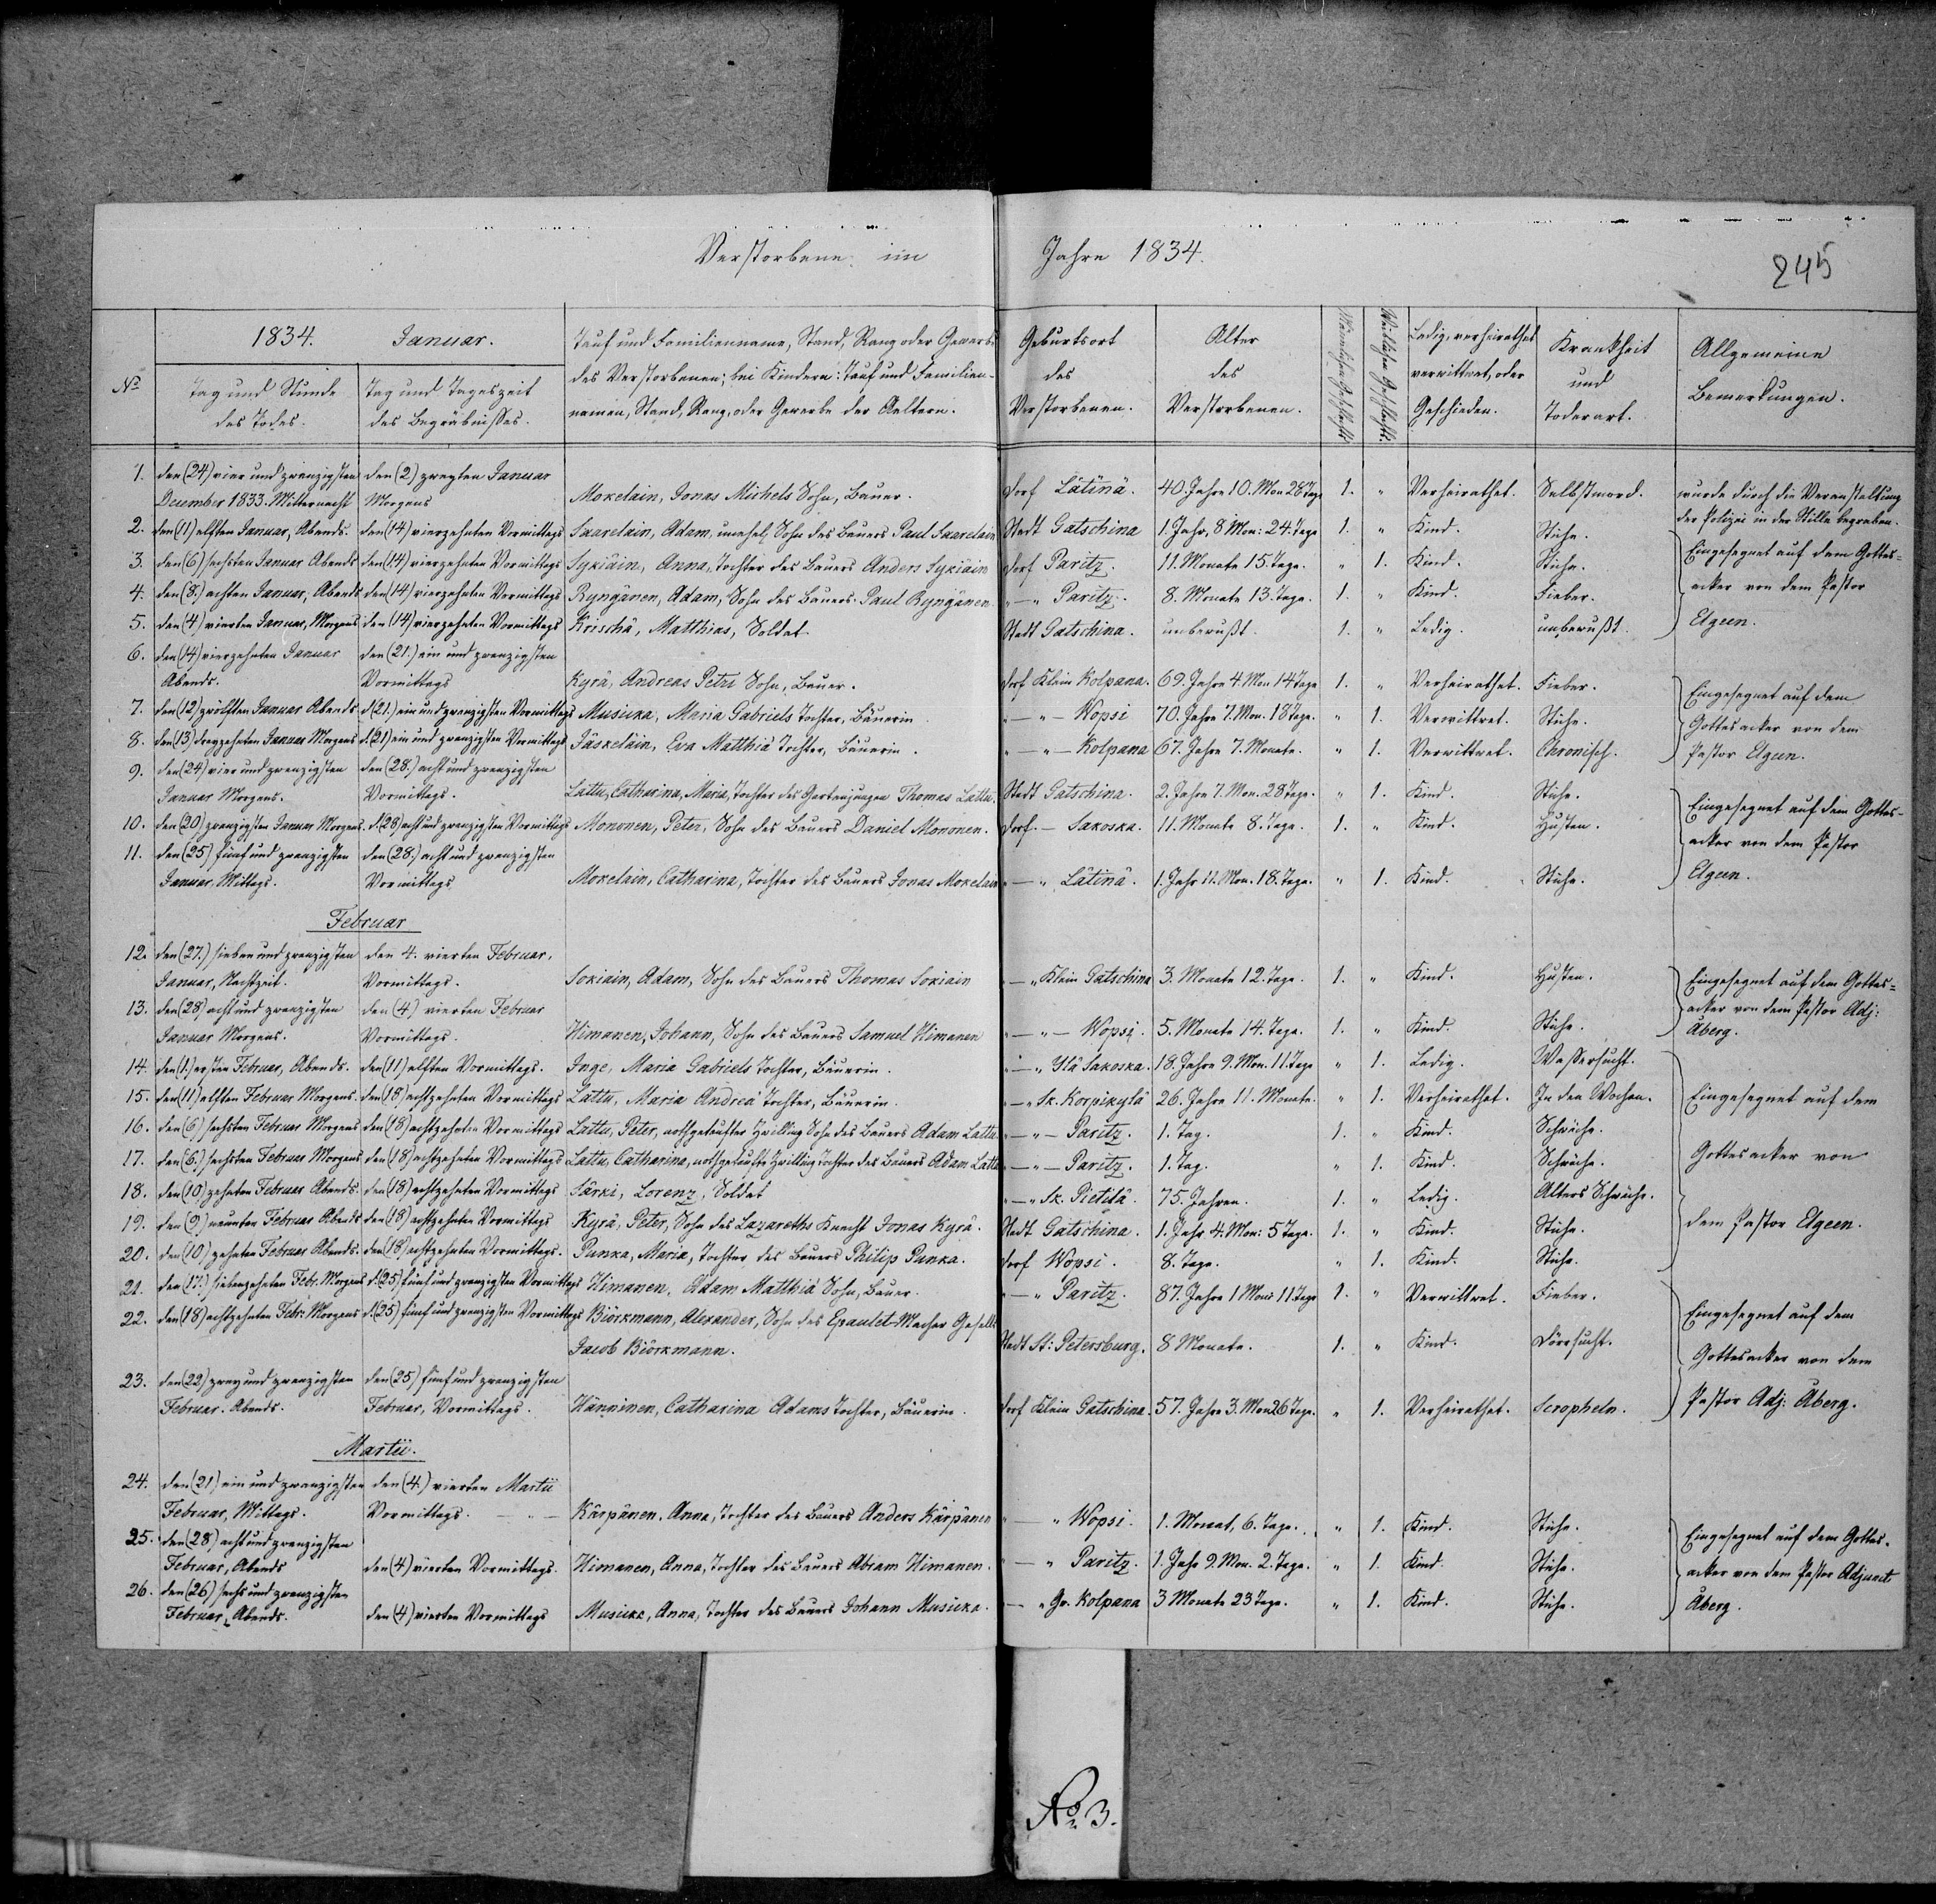 Verstorbene im Jahre 1834.
245
1834. Januar.
No
Tag und Stunde des Todes.
Tag und Tageszeit des Begräbnisses.
Tauf und Familienname, Stand, Rang oder Gewerbe
des Verstorbenen; bei Kindern: Tauf und Familien-
namen, Stand, Rang, oder Gewerbe der Aeltern.
Geburtsort des Verstorbenen.
Alter des Verstorbenen.
Männlichen Geschlechts.
Weiblichen Geschlechts.
Ledig, verheirathet verwittwet, oder Geschieden.
Krankheit und Todesart.
Allgemeine Bemerkungen.
1. den (24) vier und zwanzigsten den (2) zweyten Januar
December 1833. Mitternacht Morgens Moxelain, Jonas Michels Sohn, Bauer. Dorf Lätinä. 40. Jahre 10. Mon 28 Tage 1. " Verheirathet. Selbstmord. wurde durch die Veranstaltung
2. den (11) elften Januar, Abends. den (14) vierzehnten Vormittags Saxrelain, Adam, unehel. Sohn des Bauers Paul Saxrelain Stadt Gatschina 1. Jahr, 8 Mon: 24. Tage 1. " Kind. Stiche. der Polizei in der Stille begraben.
3. den (6) sechsten Januar Abends den (14) vierzehnten Vormittags Sykiäin, Anna, Tochter des Bauers Anders Sykiäin Dorf Paritz. 11. Monate 15. Tage. " 1. Kind. Stiche. Eingesegnet auf dem Gottes=
4. den (8.) achten Januar, Abends den (14) vierzehnten Vormittags Ryngänen, Adam, Sohn des Bauers Paul Ryngänen. " — " Paritz. 8. Monate 13. Tage. 1. " Kind. Fieber. acker von dem Pastor
5. den (4) vierten Januar, Morgens den (14) vierzehnten Vormittags Krischä, Matthias, Soldat. Stadt Gatschina. unbewußt. 1. " Ledig. unbewußt. Elgeen.
6. den (14) vierzehnten Januar den (21.) ein und zwanzigsten
Abends. Vormittags Kyrä, Andreas Petri Sohn, Bauer. Dorf Klein Kolpana. 69. Jahre 4. Mon 14 Tage 1. " Verheirathet. Fieber. Eingesegnet auf dem
7. den (12) zwölften Januar Abends d. (21.) ein und zwanzigsten Vormittags Musicka, Maria Gabriels Tochter, Bäuerin. " — " — Wopsi 70. Jahre 7. Mon. 18 Tage. " 1. Verwittwet. Stiche. Gottesacker von dem
8. den (13) dreyzehnten Januar Morgens d. (21) ein und zwanzigsten Vormittags Jäskeläin, Eva Matthiä Tochter, Bäuerin. " — " — Kolpana 67. Jahre 7. Monate. " 1. Verwittwet. Chronisch. Pastor Elgeen.
9. den (24) vier und zwanzigsten den (28.) acht und zwanzigsten
Januar Morgens. Vormittags. Lattu, Catharina, Maria, Tochter des Gartenjungen Thomas Lattu. Stadt Gatschina. 2. Jahre 7. Mon. 28 Tage. " 1. Kind. Stiche. Eingesegnet auf dem Gottes-
10. den (20) zwanzigsten Januar Morgens. d. (28) acht und zwanzigsten Vormittags Mononen, Peter, Sohn des Bauers Daniel Mononen. Dorf. — Sakoska. 11. Monate 8. Tage. 1. " Kind. Husten. acker von dem Pastor
11. den (25) fünf und zwanzigsten den (28.) acht und zwanzigsten
Januar, Mittags. Vormittags Moxelain, Catharina, Tochter des Bauers Jonas Moxelain " — " Lätinä. 1. Jahr 11. Mon. 18. Tage. " 1. Kind. Stiche. Elgeen.
Februar
12. den (27.) sieben und zwanzigsten den 4. vierten Februar.
Januar, Nachtzeit. Vormittags. Sokiain, Adam, Sohn des Bauers Thomas Sokiain " — " Klein Gatschina 3. Monate 12. Tage. 1. " Kind. Husten. Eingesegnet auf dem Gottes=
13. den (28) acht und zwanzigsten den (4) vierten Februar acker von dem Pastor Adj:
Januar Morgens. Vormittags. Himanen, Johann, Sohn des Bauers Samuel Himanen " — " — Wopsi. 5. Monate 14. Tage. 1. " Kind. Stiche. Åberg.
14. den (1.) ersten Februar, Abends. den (11) elften Vormittags. Inge, Maria Gabriels Tochter, Bäuerin. " — " Ylä Sakoska. 18. Jahre 9. Mon. 11. Tage " 1. Ledig. Wassersucht.
15. den (11) elften Februar Morgens. den (18) achtzehnten Vormittags Lattu, Maria Andreä Tochter, Bäuerin. " — " Sk. Korpikylä 26. Jahre 11. Monate. " 1. Verheirathet. In den Wochen. Eingesegnet auf dem
16. den (6) sechsten Februar Morgens den (18) achtzehnten Vormittags Lattu, Peter, nothgetaufter Zwilling Sohn des Bauers Adam Lattu. " — " — Paritz. 1. Tag. 1. " Kind. Schwäche.
17. den (6.) sechsten Februar Morgens den (18) achtzehnten Vormittags Lattu, Catharina, nothgetaufte Zwilling Tochter des Bauers Adam Lattu " — " — Paritz. 1. Tag. " 1. Kind. Schwäche. Gottesacker von
18. den (10) zehnten Februar Abends. den (18) achtzehnten Vormittags Särki, Lorenz, Soldat " — " Sk. Pietilä. 75. Jahren. 1. " Ledig. Alters Schwäche.
19. den (9) neunten Februar Abends den (18) achtzehnten Vormittags Kyrä, Peter, Sohn des Lazareths Knecht Jonas Kyrä. Stadt Gatschina. 1. Jahr 4. Mon: 5 Tage. 1. " Kind. Stiche. dem Pastor Elgeen.
20. den (10) zehnten Februar Abends. den (18) achtzehnten Vormittags. Punka, Maria, Tochter des Bauers Philip Punka. Dorf Wopsi. 8. Tage. " 1. Kind. Stiche.
21. den (17.) siebenzehnten Febr. Morgens d. (25) fünf und zwanzigsten Vormittags Himanen, Adam Matthiä Sohn, Bauer. " — " Paritz. 87. Jahre 1 Mon: 11 Tage 1. " Verwittwet. Fieber.
22. den (18) achtzehnten Febr. Morgens d. (25) fünf und zwanzigsten Vormittags Biörkmann, Alexander, Sohn des Epaulet-Macher Gesells Eingesegnet auf dem
Jacob Biörkmann. Stadt St: Petersburg. 8 Monate. 1. " Kind. Dörrsucht. Gottesacker von dem
23. den (22) zwey und zwanzigsten den (25) fünf und zwanzigsten
Februar. Abends. Februar, Vormittags. Hänninen, Catharina Adams Tochter, Bäuerin. Dorf Klein Gatschina. 57. Jahre 3. Mon 26 Tage. " 1. Verheirathet. Scropheln. Pastor Adj: Åberg.
Martii.
24. den (21) ein und zwanzigsten den (4.) vierten Martii
Februar, Mittags. Vormittags. — " — Kärpänen, Anna, Tochter des Bauers Anders Kärpänen " — " Wopsi. 1. Monat, 6. Tage. " 1. Kind. Stiche. Eingesegnet auf dem Gottes-
25. den (28) acht und zwanzigsten
Februar, Abends den (4) vierten Vormittags. Himanen, Anna, Tochter des Bauers Abram Himanen. " — " Paritz. 1. Jahr 9. Mon. 2. Tage. " 1. Kind. Stiche. acker von dem Pastor Adjunct
26. den (26) sechs und zwanzigsten
Februar, Abends. den (4) vierten Vormittags Musicka, Anna, Tochter des Bauers Johann Musicka. — " Gr. Kolpana 3 Monate 23 Tage. " 1. Kind. Stiche. Åberg.
No. 3.